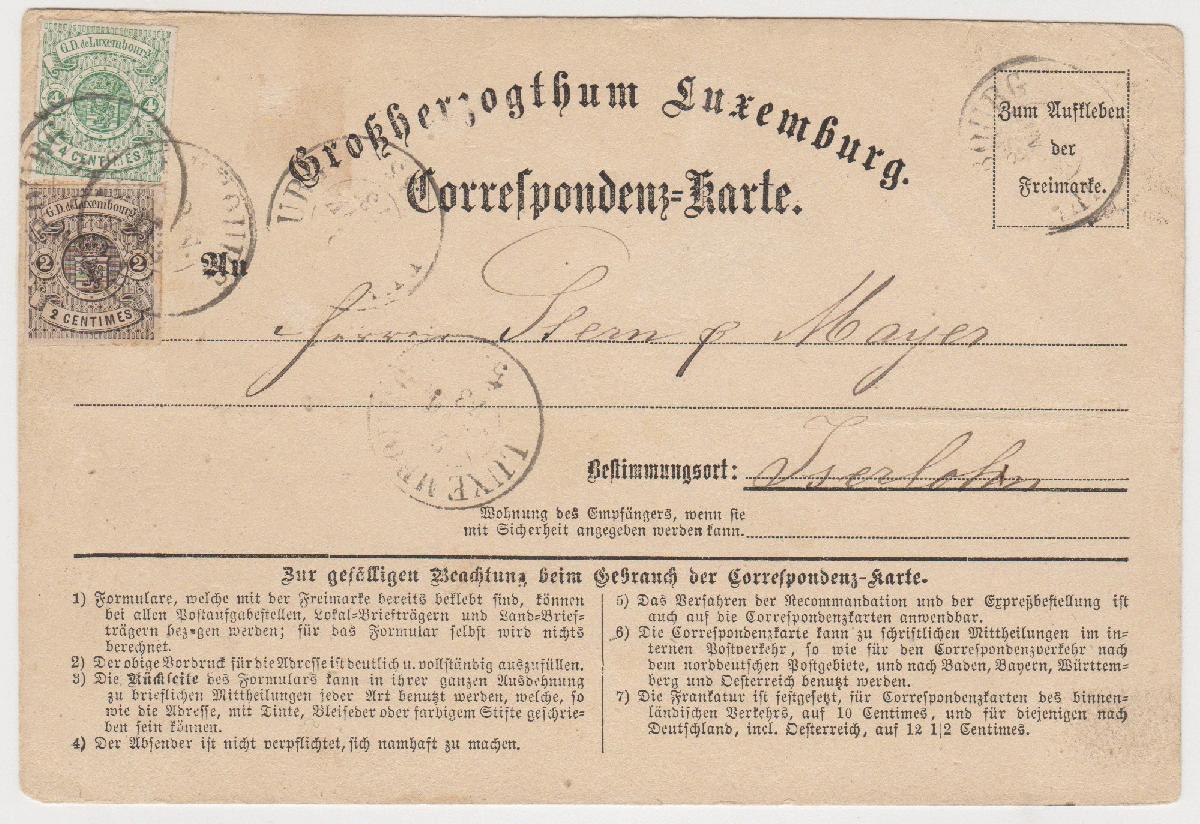 G.D. de Luxembourg
4 4
4 CENTIMES
G.D. de Luxembourg
2 2
2 CENTIMES
Großherzogthum Luxemburg.
Correspondenz-Karte.
Zum Aufkleben
der
Freimarke.
An
Herrn Stern & Mayer
LUXEMBOURG
Bestimmungsort: Iserlohn
Wohnung des Empfängers, wenn sie
mit Sicherheit angegeben werden kann.
Zur gefälligen Beachtung beim Gebrauch der Correspondenz-Karte.
1) Formulare, welche mit der Freimarke bereits beklebt sind, können
bei allen Postaufgabestellen, Lokal-Briefträgern und Land-Brief-
trägern bezogen werden; für das Formular selbst wird nichts
berechnet.
2) Der obige Vordruck für die Adresse ist deutlich u. vollständig auszufüllen.
3) Die Rückseite des Formulars kann in ihrer ganzen Ausdehnung
zu brieflichen Mittheilungen jeder Art benutzt werden, welche, so
wie die Adresse, mit Tinte, Bleifeder oder farbigem Stifte geschrie-
ben sein können.
4) Der Absender ist nicht verpflichtet, sich namhaft zu machen.
5) Das Verfahren der Recommandation und der Expreßbestellung ist
auch auf die Correspondenzkarten anwendbar.
6) Die Correspondenzkarte kann zu schriftlichen Mittheilungen im in-
ternen Postverkehr, so wie für den Correspondenzverkehr nach
dem norddeutschen Postgebiete, und nach Baden, Bayern, Württem-
berg und Oesterreich benutzt werden.
7) Die Frankatur ist festgesetzt, für Correspondenzkarten des binnen-
ländischen Verkehrs, auf 10 Centimes, und für diejenigen nach
Deutschland, incl. Oesterreich, auf 12 1|2 Centimes.